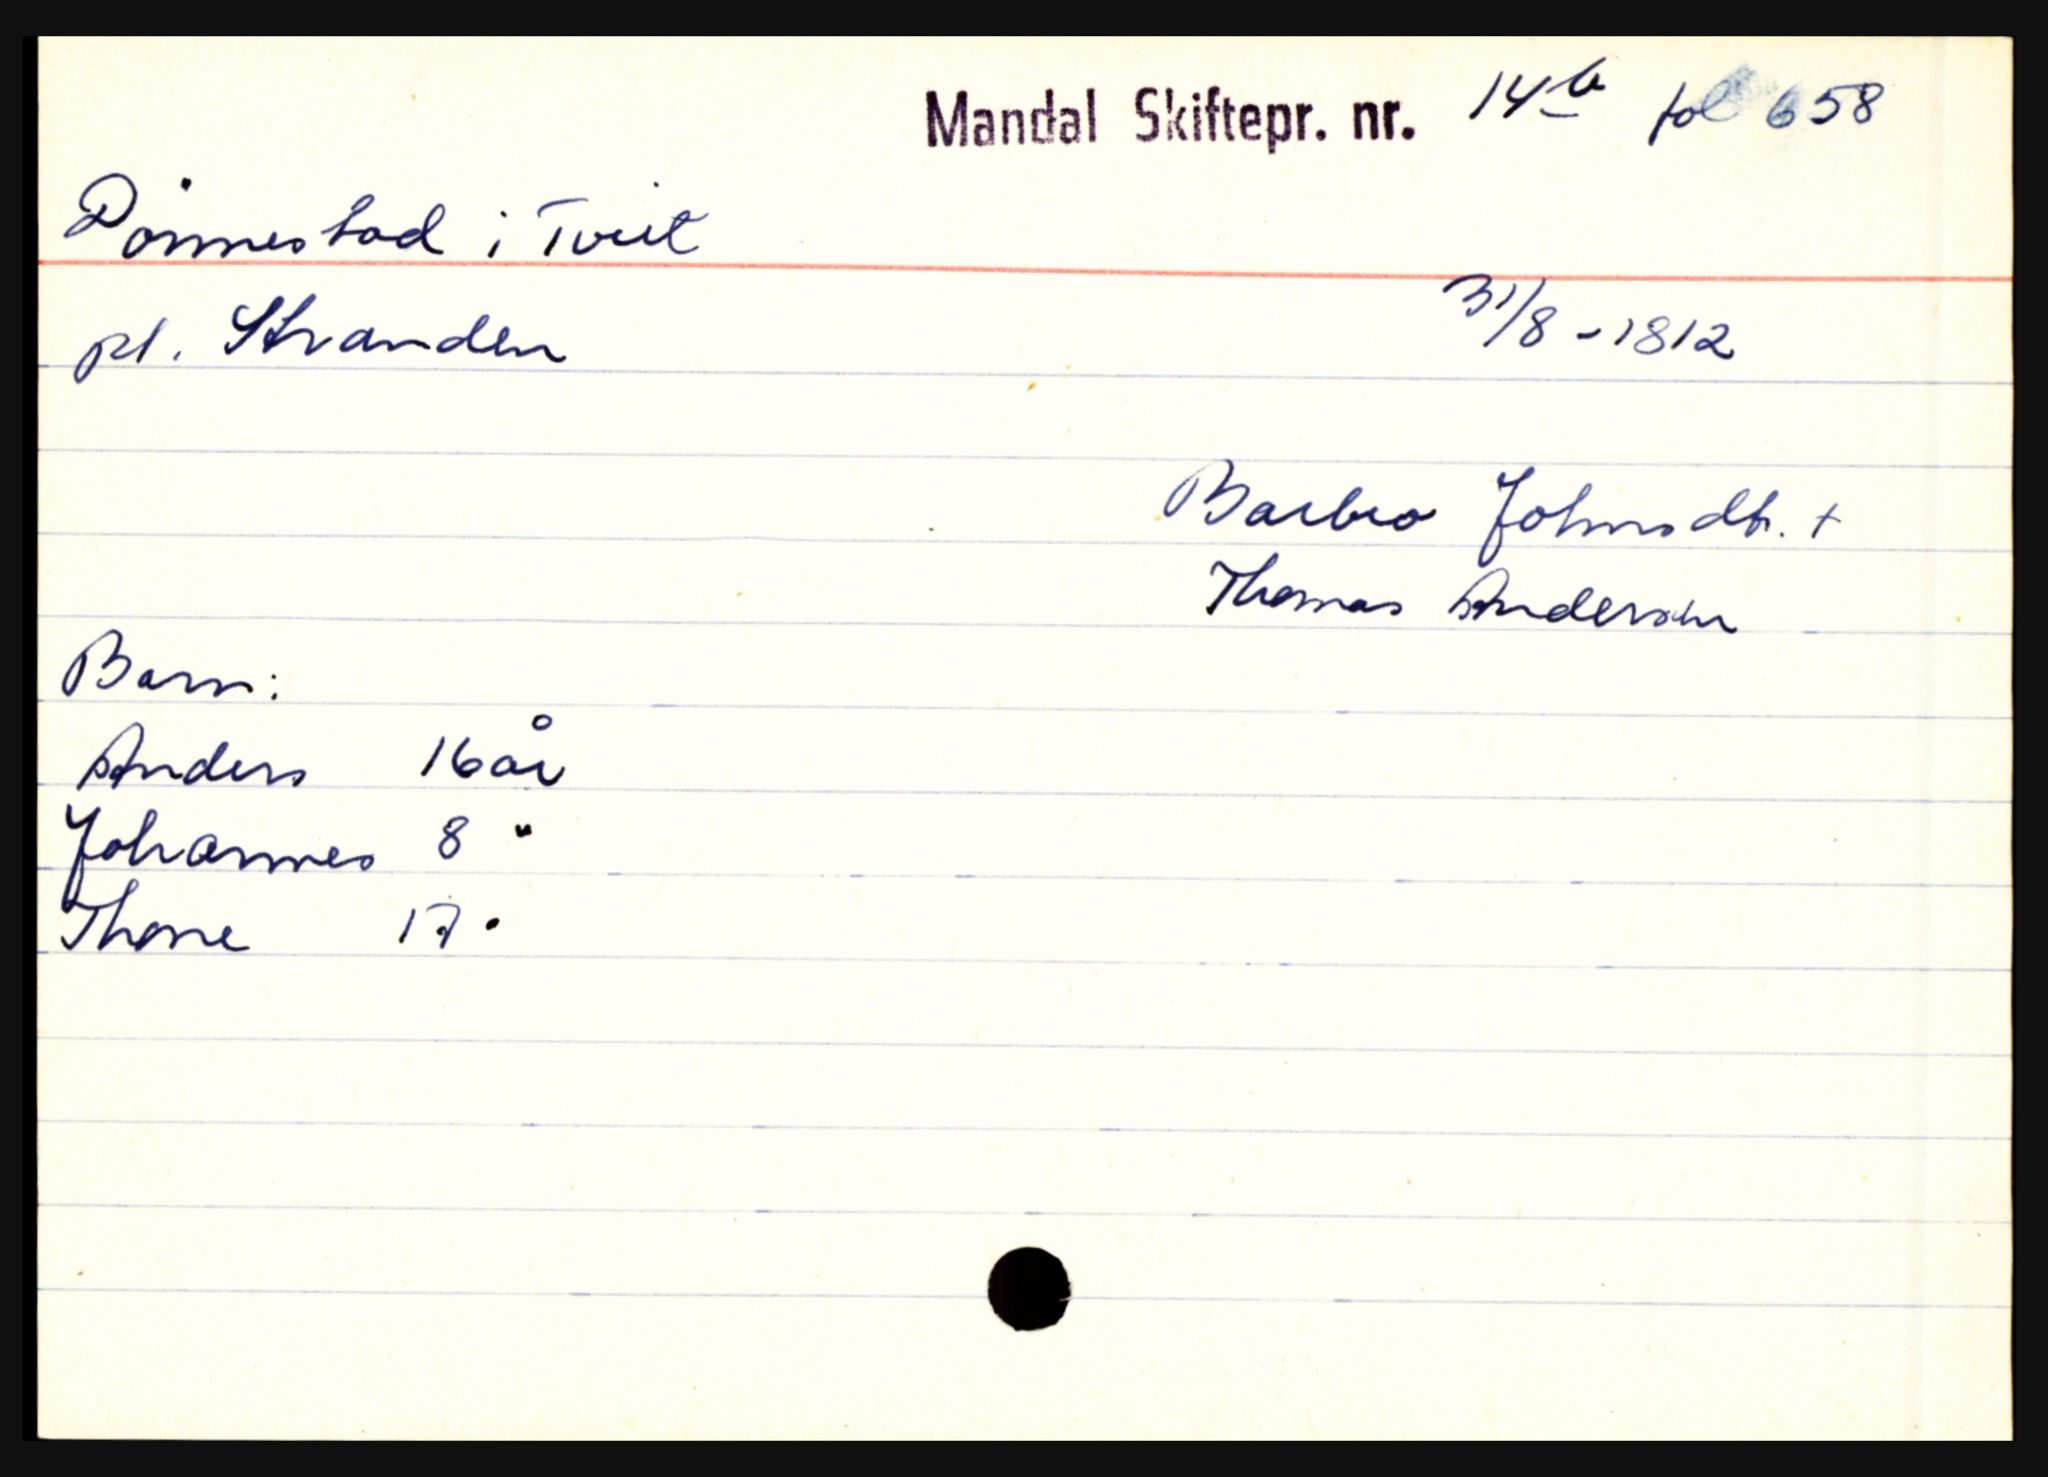 Mandal Skiftepr. nr. 14b fol 658
Dönnestad i Tveit
pl. Stranden 31/8 - 1812
Barbro Johnsdtr. +
Thomas Andersen
Barn:
Anders 16 år
Johannes 8 "
Thone 17 "